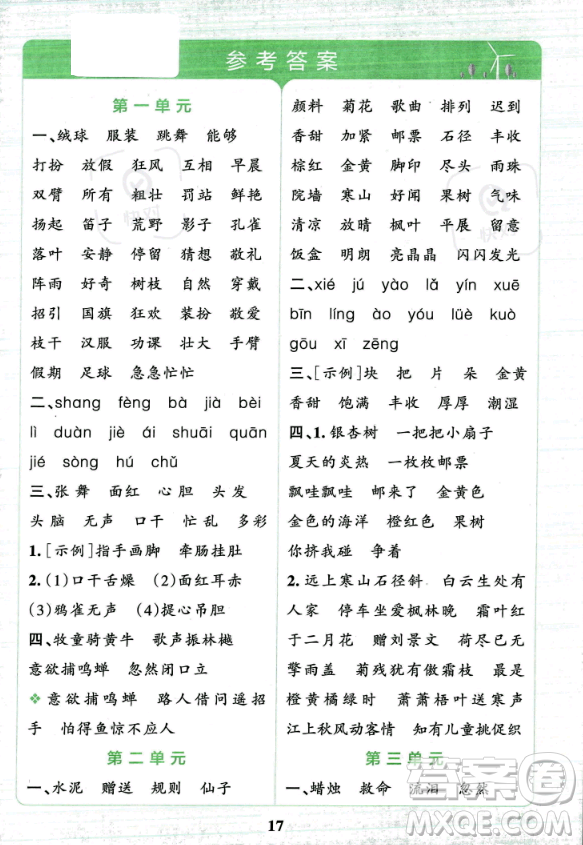 参考答案
第一单元
一、绒球 服装 跳舞 能够
打扮 放假 狂风 互相 早晨
双臂 所有 粗壮 罚站 鲜艳
扬起 笛子 荒野 影子 孔雀
落叶 安静 停留 猜想 敬礼
阵雨 好奇 树枝 自然 穿戴
招引 国旗 狂欢 装扮 敬爱
枝干 汉服 功课 壮大 手臂
假期 足球 急急忙忙
二、shang fèng bà jià bèi
lì duàn jiè ái shuāi quān
jié sòng hú chǔ
三、张 舞 面红 心胆 头发
头脑 无声 口干 忙乱 多彩
1.[示例]指手画脚 牵肠挂肚
2.(1)口干舌燥 (2)面红耳赤
(3)鸦雀无声 (4)提心吊胆
四、牧童骑黄牛 歌声振林樾
意欲捕鸣蝉 忽然闭口立
❖意欲捕鸣蝉 路人借问遥招
手 怕得鱼惊不应人
第二单元
一、水泥 赠送 规则 仙子
颜料 菊花 歌曲 排列 迟到
香甜 加紧 邮票 石径 丰收
棕红 金黄 脚印 尽头 雨珠
院墙 寒山 好闻 果树 气味
清凉 放晴 枫叶 平展 留意
饭盒 明朗 亮晶晶 闪闪发光
二、xié jú yào lǎ yín
bīn líng ào yóu lüè kuò
gōu xī zēng
三、[示例]块 把 片 朵 金黄
香甜 饱满 丰收 厚厚 潮湿
四、1.银杏树 一把把小扇子
夏天的炎热 一枚枚邮票
飘哇飘哇 邮来了 金黄色
金色的海洋 橙红色 果树
你挤我碰 争着
2.远上寒山石径斜 白云生处有
人家 停车坐爱枫林晚 霜叶红
于二月花 赠刘景文 荷尽已无
擎雨盖 菊残犹有傲霜枝 最是
橙黄橘绿时 萧萧梧叶送寒声
江上秋风动客情 知有儿童挑促织
第三单元
一、蜡烛 救命 流泪 忽然
17
答案圈
MXQE.COM